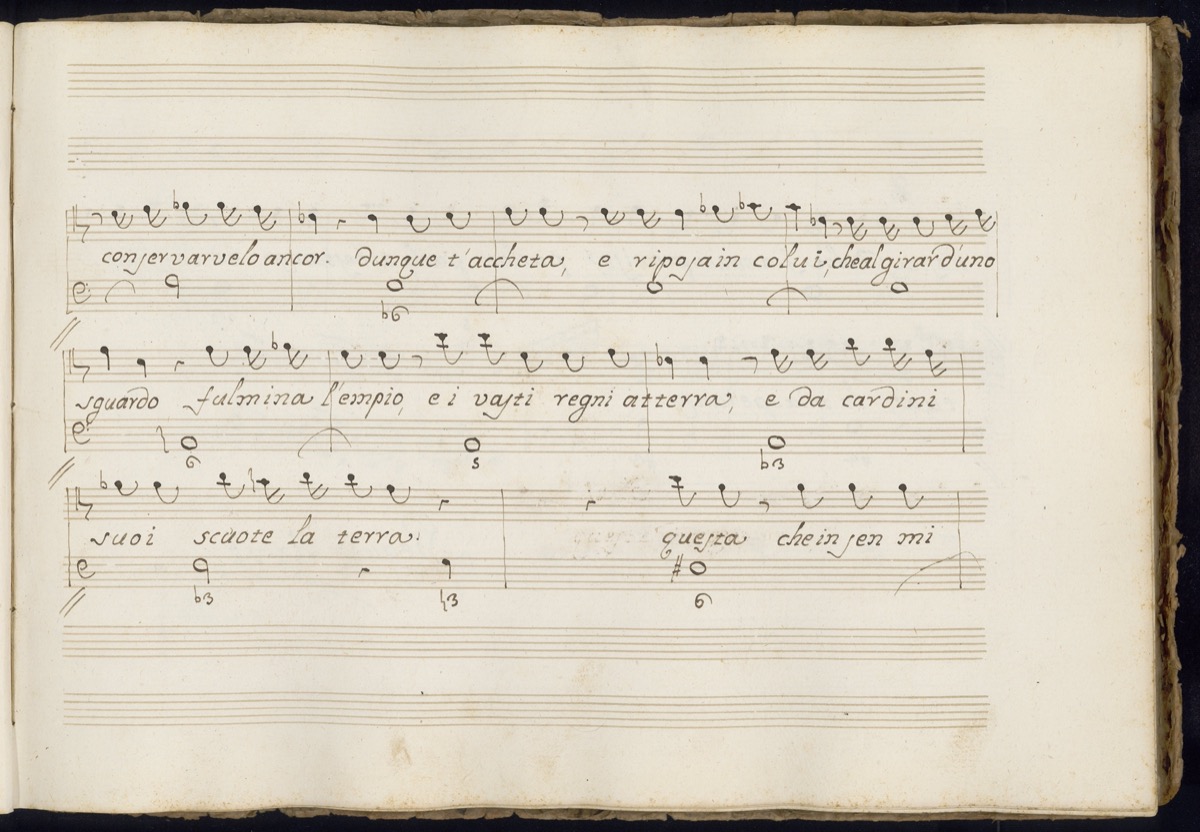 conservarvelo ancor. dunque t'accheta, e riposa in colui, che al girar d'uno
♭6
sguardo fulmina l'empio, e i vasti regni atterra, e da cardini
6 5 ♭3
suoi scuote la terra. questa che in sen mi
♭3 ♮3 6